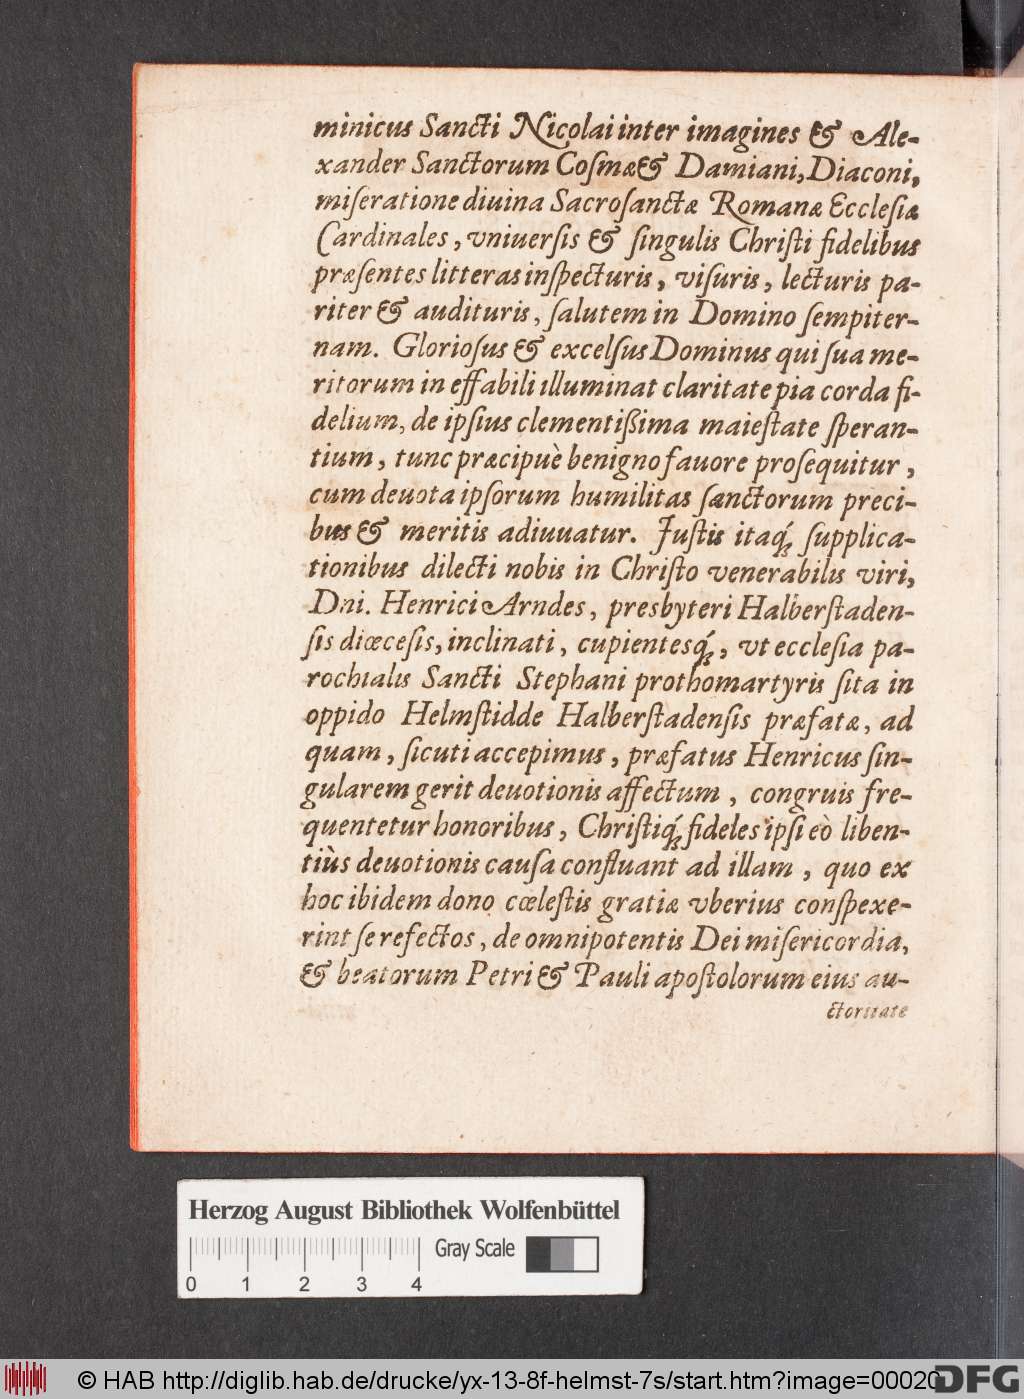 minicus Sancti Nicolai inter imagines & Ale-
xander Sanctorum Coſmæ & Damiani, Diaconi,
miſeratione diuina Sacroſanctæ Romanæ Eccleſiæ
Cardinales, vniuerſis & ſingulis Chriſti fidelibus
præſentes litteras inſpecturis, viſuris, lecturis pa-
riter & audituris, ſalutem in Domino ſempiter-
nam. Glorioſus & excelſus Dominus qui ſua me-
ritorum in effabili illuminat claritate pia corda fi-
delium, de ipſius clementißima maieſtate ſperan-
tium, tunc præcipuè benigno fauore proſequitur,
cum deuota ipſorum humilitas ſanctorum preci-
bus & meritis adiuuatur. Juſtis itaq́; ſupplica-
tionibus dilecti nobis in Chriſto venerabilis viri,
Dni. Henrici Arndes, presbyteri Halberſtaden-
ſis diœceſis, inclinati, cupientesq́;, vt eccleſia pa-
rochialis Sancti Stephani prothomartyris ſita in
oppido Helmſtidde Halberſtadenſis præfatæ, ad
quam, ſicuti accepimus, præfatus Henricus ſin-
gularem gerit deuotionis affectum, congruis fre-
quentetur honoribus, Chriſtiq́; fideles ipſi eò liben-
tiùs deuotionis cauſa confluant ad illam, quo ex
hoc ibidem dono cœleſtis gratiæ vberius conſpexe-
rint ſe refectos, de omnipotentis Dei miſericordia,
& beatorum Petri & Pauli apoſtolorum eius au-
ctoritate
Herzog August Bibliothek Wolfenbüttel
Gray Scale
0 1 2 3 4
© HAB http://diglib.hab.de/drucke/yx-13-8f-helmst-7s/start.htm?image=00020
DFG